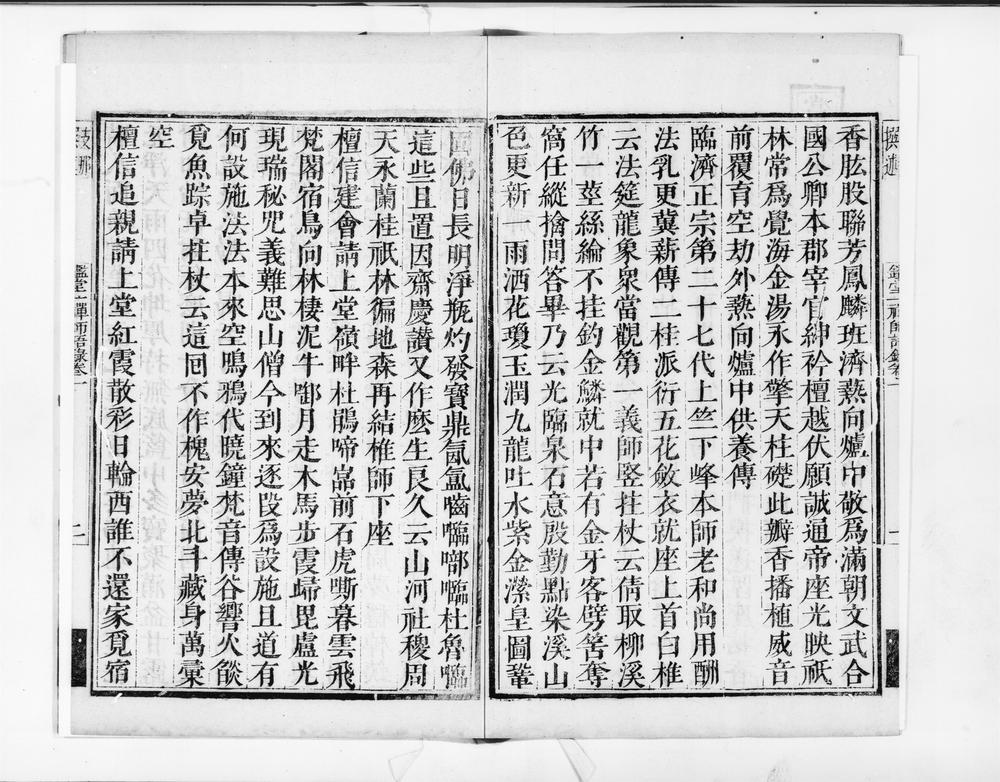 香肱股聯芳鳳麟班濟爇向爐中敬爲滿朝文武合
國公卿本郡宰官紳衿檀越伏願誠通帝座光映祇
林常爲覺海金湯永作擎天柱礎此瓣香播植威音
前覆育空劫外爇向爐中供養傳
臨濟正宗第二十七代上竺下峰本師老和尚用酬
法乳更冀薪傳二桂派衍五花斂衣就座上首白椎
云法筵龍象衆當觀第一義師竪拄杖云倩取柳溪
竹一莖絲綸不挂鈎金鱗就中若有金牙客劈筈奪
窩任縱擒問答畢乃云光臨泉石意殷勤點染溪山
色更新一雨洒花瓊玉潤九龍吐水紫金濚皇圖鞏
固佛日長明淨瓶灼發寶鼎氤氳嚙㘓啷㘓杜魯㘓
這些且置因齋慶讚又作麽生良久云山河社稷周
天永蘭桂祇林徧地森再結椎師下座
檀信建會請上堂嶺畔杜鵑啼嵓前石虎嘶暮雲飛
梵閣宿鳥向林棲泥牛啣月走木馬步霞歸毘盧光
現瑞秘咒義難思山僧今到來逐段爲設施且道有
何設施法法本來空鳴鴉代曉鐘梵音傳谷響火燄
覓魚踪卓拄杖云這囘不作槐安夢北斗藏身萬彙
空
檀信追親請上堂紅霞散彩日輪西誰不還家覓宿
鑑堂一禪師語錄卷一
一
鑑堂一禪師語錄卷一
二